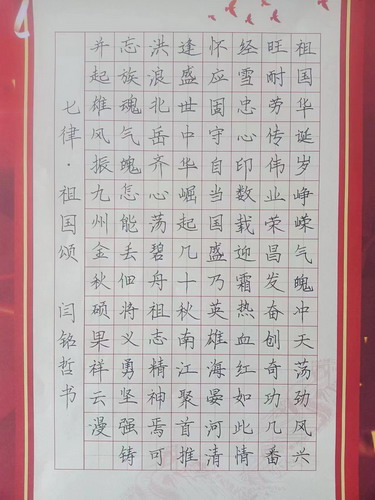 祖国华诞岁峥嵘气魄冲天荡劲风兴
旺耐劳传伟业荣昌发奋创奇功几番
经雪忠心印数载迎霜热血红如此情
怀应固守自当国盛乃英雄海晏河清
逢盛世中华崛起几十秋南江聚首推
洪浪北岳齐心荡碧舟祖志精神焉可
忘族魂气魄怎能丢佃将义勇坚强铸
并起雄风振九州金秋硕果祥云漫
七律·祖国颂 闫铭哲书